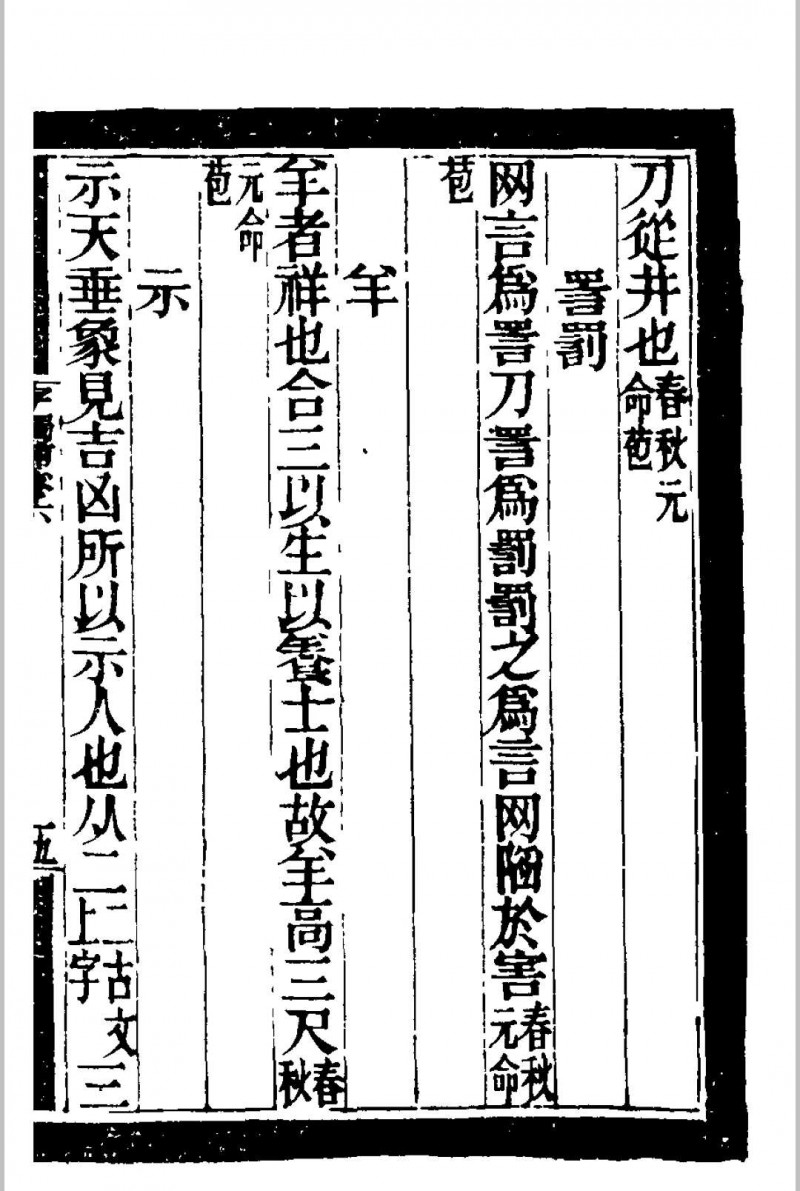 刀從井也春秋元命苞
詈罰
网言爲詈刀詈爲罰罰之爲言网陷於害春秋元命
苞
羊
羊者祥也合三以生以養士也故羊高三尺春秋
元命苞
示
示天垂象見吉凶所以示人也从二二古文上字三
五